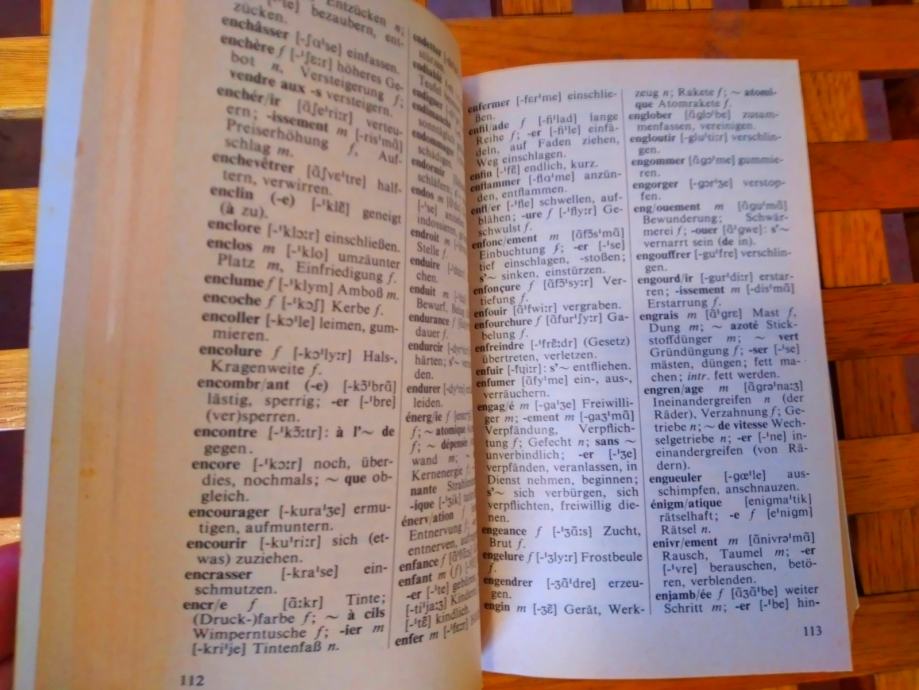 Entzücken n;
bezaubern, ent-
zücken.
enchâsser [-ʃɑˈse] einfassen.
enchère f [-ˈʃɛ:r] höheres Ge-
bot n, Versteigerung f;
vendre aux -s versteigern.
enchér/ir [ɑ̃ʃeˈri:r] verteu-
ern; -issement m [-risˈmɑ̃]
Preiserhöhung f, Auf-
schlag m.
enchevêtrer [ɑ̃ʃvɛˈtre] half-
tern, verwirren.
enclin (-e) [-ˈklɛ̃] geneigt
(à zu).
enclore [-ˈklɔ:r] einschließen.
enclos m [-ˈklo] umzäunter
Platz m, Einfriedigung f.
enclume f [-ˈklym] Amboß m.
encoche f [-ˈkɔʃ] Kerbe f.
encoller [-kɔˈle] leimen, gum-
mieren.
encolure f [-kɔˈly:r] Hals-,
Kragenweite f.
encombr/ant (-e) [-kɔ̃ˈbrɑ̃]
lästig, sperrig; -er [-ˈbre]
(ver)sperren.
encontre [-ˈkɔ̃:tr]: à l'~ de
gegen.
encore [-ˈkɔ:r] noch, über-
dies, nochmals; ~ que ob-
gleich.
encourager [-kuraˈʒe] ermu-
tigen, aufmuntern.
encourir [-kuˈri:r] sich (et-
was) zuziehen.
encrasser [-kraˈse] ein-
schmutzen.
encr/e f [ɑ̃:kr] Tinte;
(Druck-)farbe f; ~ à cils
Wimperntusche f; -ier m
[-kriˈje] Tintenfaß n.
112
Teufel
endiguer
schläfern,
endos m
[-ˈse]
endroit m
Stelle f
enduire
chen.
enduit m
Bewurf,
endurance f
dauer f.
endurcir
härten; s'~
den.
endurer
leiden.
énerg/ie f
f; ~ atomique
f; ~ dépensée
wand m;
Kernenergie f
-ique [-ˈʒik]
énerv/ation f
Entnervung f
entnerven,
enfance f
enfant m (f)
-er [-ˈte]
[-tiˈja:ʒ]
[-ˈtɛ̃] kindlich.
enfer m [-ˈfɛ:r]
enfermer [-fɛrˈme] einschlie-
ßen.
enfil/ade f [-fiˈlad] lange
Reihe f; -er [-fiˈle] einfä-
deln, auf Faden ziehen,
Weg einschlagen.
enfin [-ˈfɛ̃] endlich, kurz.
enflammer [-flɑˈme] anzün-
den, entflammen.
enfl/er [-ˈfle] schwellen, auf-
blähen; -ure f [-ˈfly:r] Ge-
schwulst f.
enfonc/ement m [ɑ̃fɔ̃sˈmɑ̃]
Einbuchtung f; -er [-ˈse]
tief einschlagen, -stoßen;
s'~ sinken, einstürzen.
enfonçure f [ɑ̃fɔ̃ˈsy:r] Ver-
tiefung f.
enfouir [ɑ̃ˈfwi:r] vergraben.
enfourchure f [ɑ̃furˈʃy:r] Ga-
belung f.
enfreindre [-ˈfrɛ̃:dr] (Gesetz)
übertreten, verletzen.
enfuir [-fɥi:r]: s'~ entfliehen.
enfumer [ɑ̃fyˈme] ein-, aus-,
verräuchern.
engag/é m [-gaˈʒe] Freiwilli-
ger m; -ement m [-gaʒˈmɑ̃]
Verpfändung, Verpflich-
tung f; Gefecht n; sans ~
unverbindlich; -er [-ˈʒe]
verpfänden, veranlassen, in
Dienst nehmen, beginnen;
s'~ sich verbürgen, sich
verpflichten, freiwillig die-
nen.
engeance f [-ˈʒɑ̃:s] Zucht,
Brut f.
engelure f [-ˈʒly:r] Frostbeule
f.
engendrer [-ʒɑ̃ˈdre] erzeu-
gen.
engin m [-ʒɛ̃] Gerät, Werk-
zeug n; Rakete f; ~ atomi-
que Atomrakete f.
englober [ɑ̃glɔˈbe] zusam-
menfassen, vereinigen.
engloutir [-gluˈti:r] verschlin-
gen.
engommer [ɑ̃gɔˈme] gummie-
ren.
engorger [-gɔrˈʒe] verstop-
fen.
eng/ouement m [ɑ̃guˈmɑ̃]
Bewunderung; Schwär-
merei f; -ouer [ɑ̃ˈgwe]: s'~
vernarrt sein (de in).
engouffrer [-guˈfre] verschlin-
gen.
engourd/ir [-gurˈdi:r] erstar-
ren; -issement m [-disˈmɑ̃]
Erstarrung f.
engrais m [ɑ̃ˈgrɛ] Mast f,
Dung m; ~ azoté Stick-
stoffdünger m; ~ vert
Gründüngung f; -ser [-ˈse]
mästen, düngen; fett ma-
chen; intr. fett werden.
engren/age m [ɑ̃grəˈna:ʒ]
Ineinandergreifen n (der
Räder), Verzahnung f; Ge-
triebe n; ~ de vitesse Wech-
selgetriebe n; -er [-ˈne] in-
einandergreifen (von Rä-
dern).
engueuler [-gœˈle] aus-
schimpfen, anschnauzen.
énigm/atique [enigmaˈtik]
rätselhaft; -e f [eˈnigm]
Rätsel n.
enivr/ement m [ɑ̃nivrəˈmɑ̃]
Rausch, Taumel m; -er
[-ˈvre] berauschen, betö-
ren, verblenden.
enjamb/ée f [ɑ̃ʒɑ̃ˈbe] weiter
Schritt m; -er [-ˈbe] hin-
113